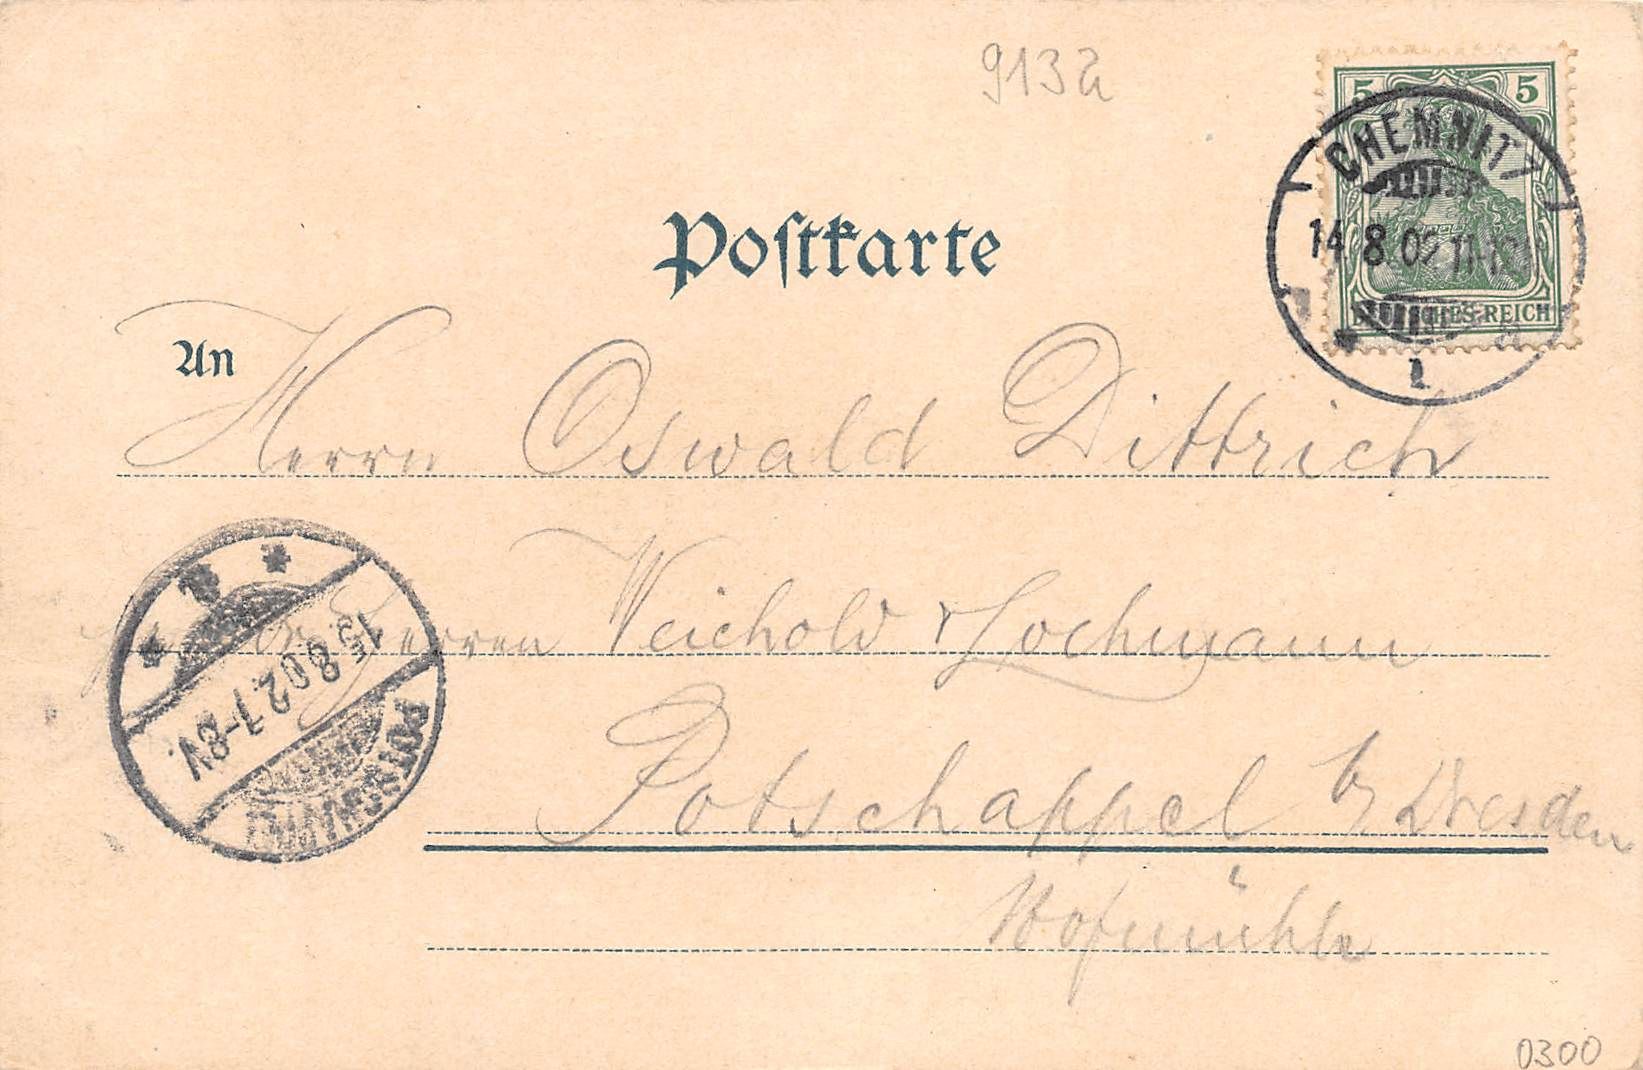 9132
5 5
CHEMNITZ
14.8.02 11-12
DEUTSCHES REICH
1
Postkarte
An
Herrn Oswald Dittrich
Herren Weichold & Lochmann
15.8.02.7-8N.
POTSCHAPPEL
Potschappel b/ Dresden
Hofmühle
0300